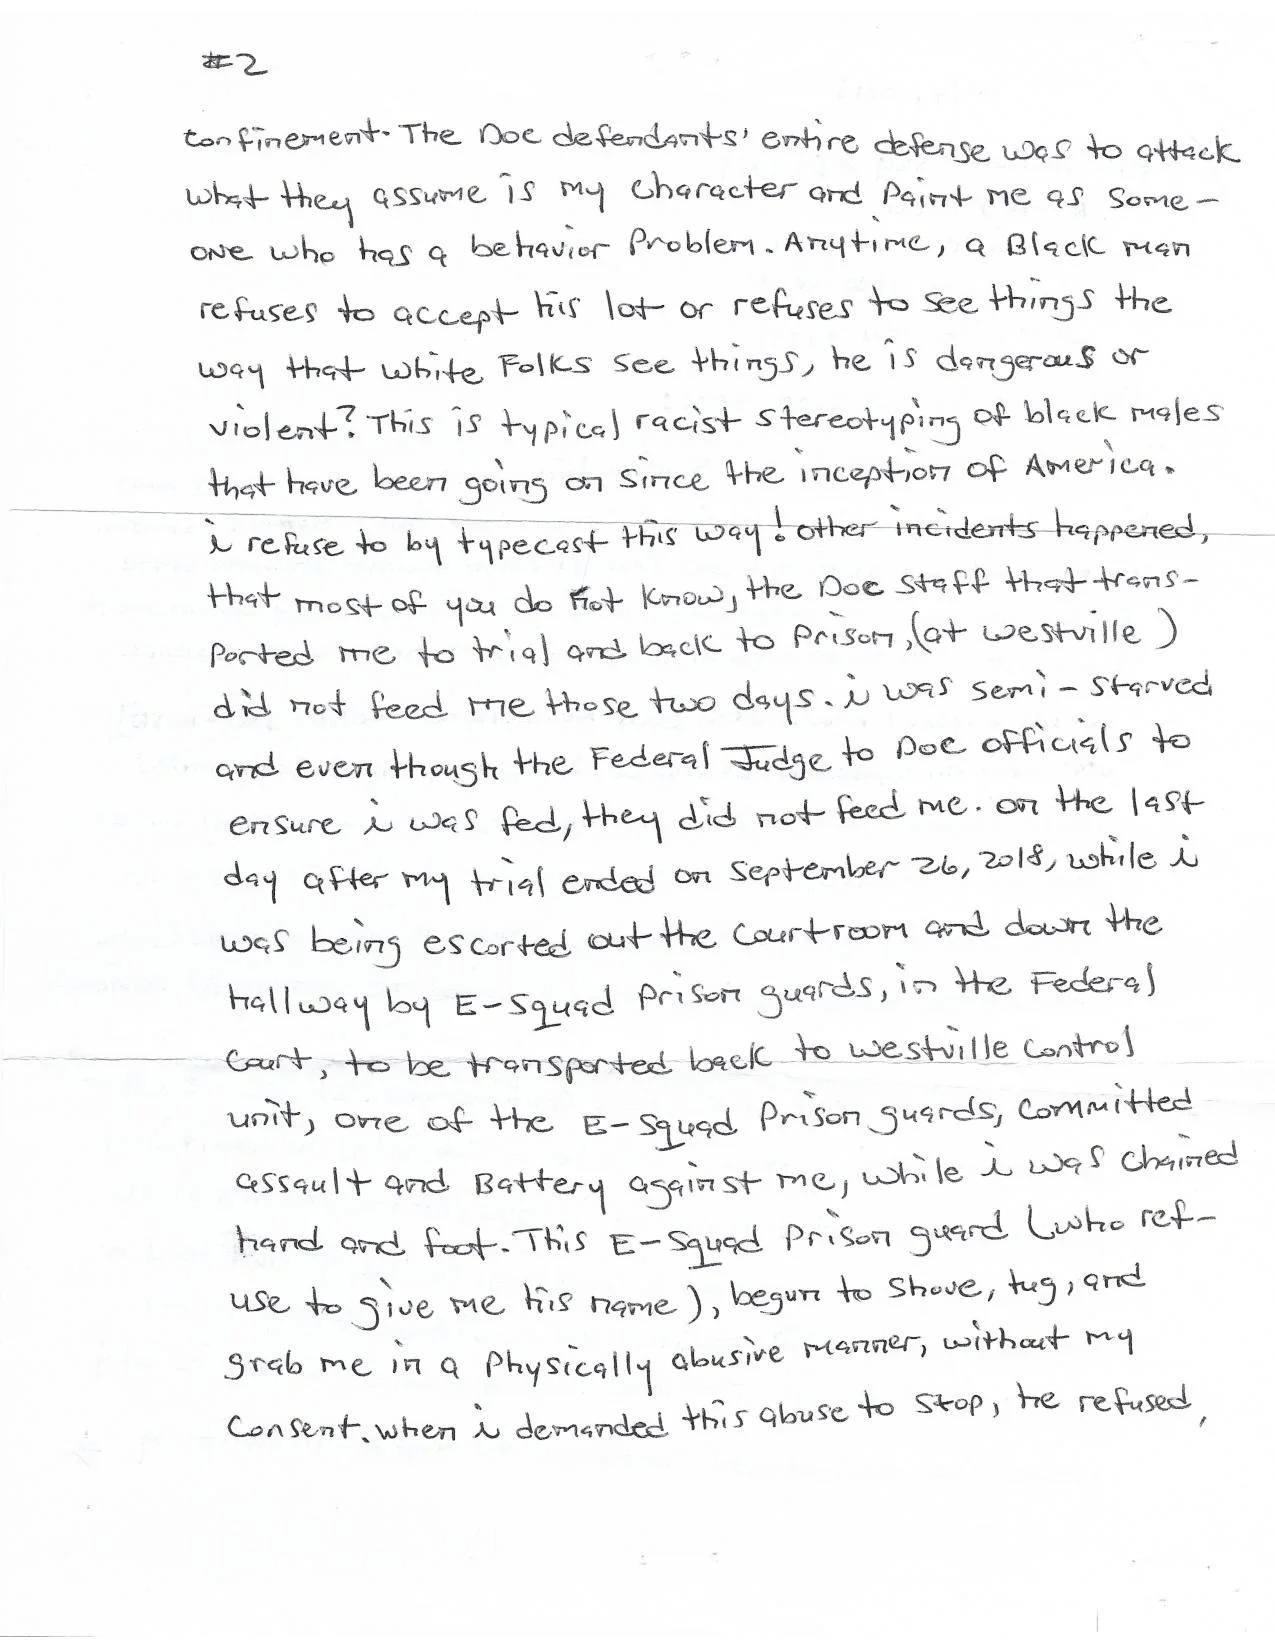 #2
confinement. The DOC defendants' entire defense was to attack
what they assume is my character and paint me as some-
one who has a behavior problem. Anytime, a Black man
refuses to accept his lot or refuses to see things the
way that white Folks see things, he is dangerous or
violent? This is typical racist stereotyping of black males
that have been going on since the inception of America.
i refuse to by typecast this way! other incidents happened,
that most of you do not know, the DOC staff that trans-
ported me to trial and back to prison, (at westville)
did not feed me those two days. i was semi-starved
and even though the Federal Judge to DOC officials to
ensure i was fed, they did not feed me. on the last
day after my trial ended on september 26, 2018, while i
was being escorted out the courtroom and down the
hallway by E-Squad prison guards, in the Federal
Court, to be transported back to westville control
unit, one of the E-Squad prison guards, committed
assault and Battery against me, while i was chained
hand and foot. This E-Squad prison guard (who ref-
use to give me his name), begun to shove, tug, and
grab me in a physically abusive manner, without my
consent. when i demanded this abuse to stop, he refused,